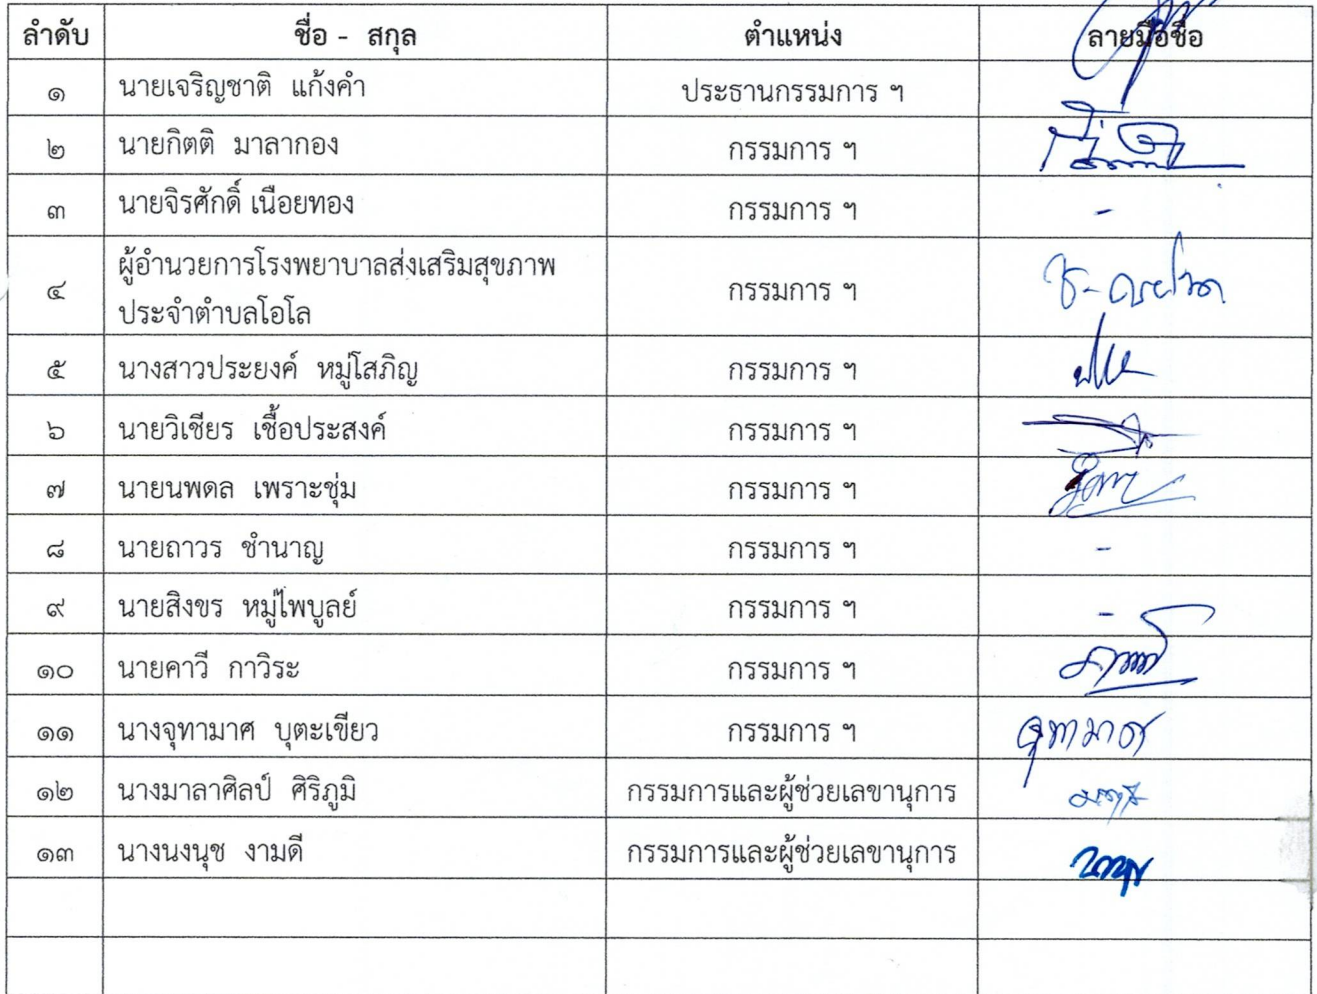 ลำดับ ชื่อ - สกุล ตำแหน่ง ลายมือชื่อ
๑ นายเจริญชาติ แก้งคำ ประธานกรรมการ ฯ
๒ นายกิตติ มาลากอง กรรมการ ฯ
๓ นายจิรศักดิ์ เนือยทอง กรรมการ ฯ -
๔ ผู้อำนวยการโรงพยาบาลส่งเสริมสุขภาพ
ประจำตำบลโอโล กรรมการ ฯ
๕ นางสาวประยงค์ หมู่โสภิญ กรรมการ ฯ
๖ นายวิเชียร เชื้อประสงค์ กรรมการ ฯ
๗ นายนพดล เพราะชุ่ม กรรมการ ฯ
๘ นายถาวร ชำนาญ กรรมการ ฯ -
๙ นายสิงขร หมู่ไพบูลย์ กรรมการ ฯ -
๑๐ นายคาวี กาวิระ กรรมการ ฯ
๑๑ นางจุทามาศ บุตะเขียว กรรมการ ฯ จุทามาศ
๑๒ นางมาลาศิลป์ ศิริภูมิ กรรมการและผู้ช่วยเลขานุการ
๑๓ นางนงนุช งามดี กรรมการและผู้ช่วยเลขานุการ